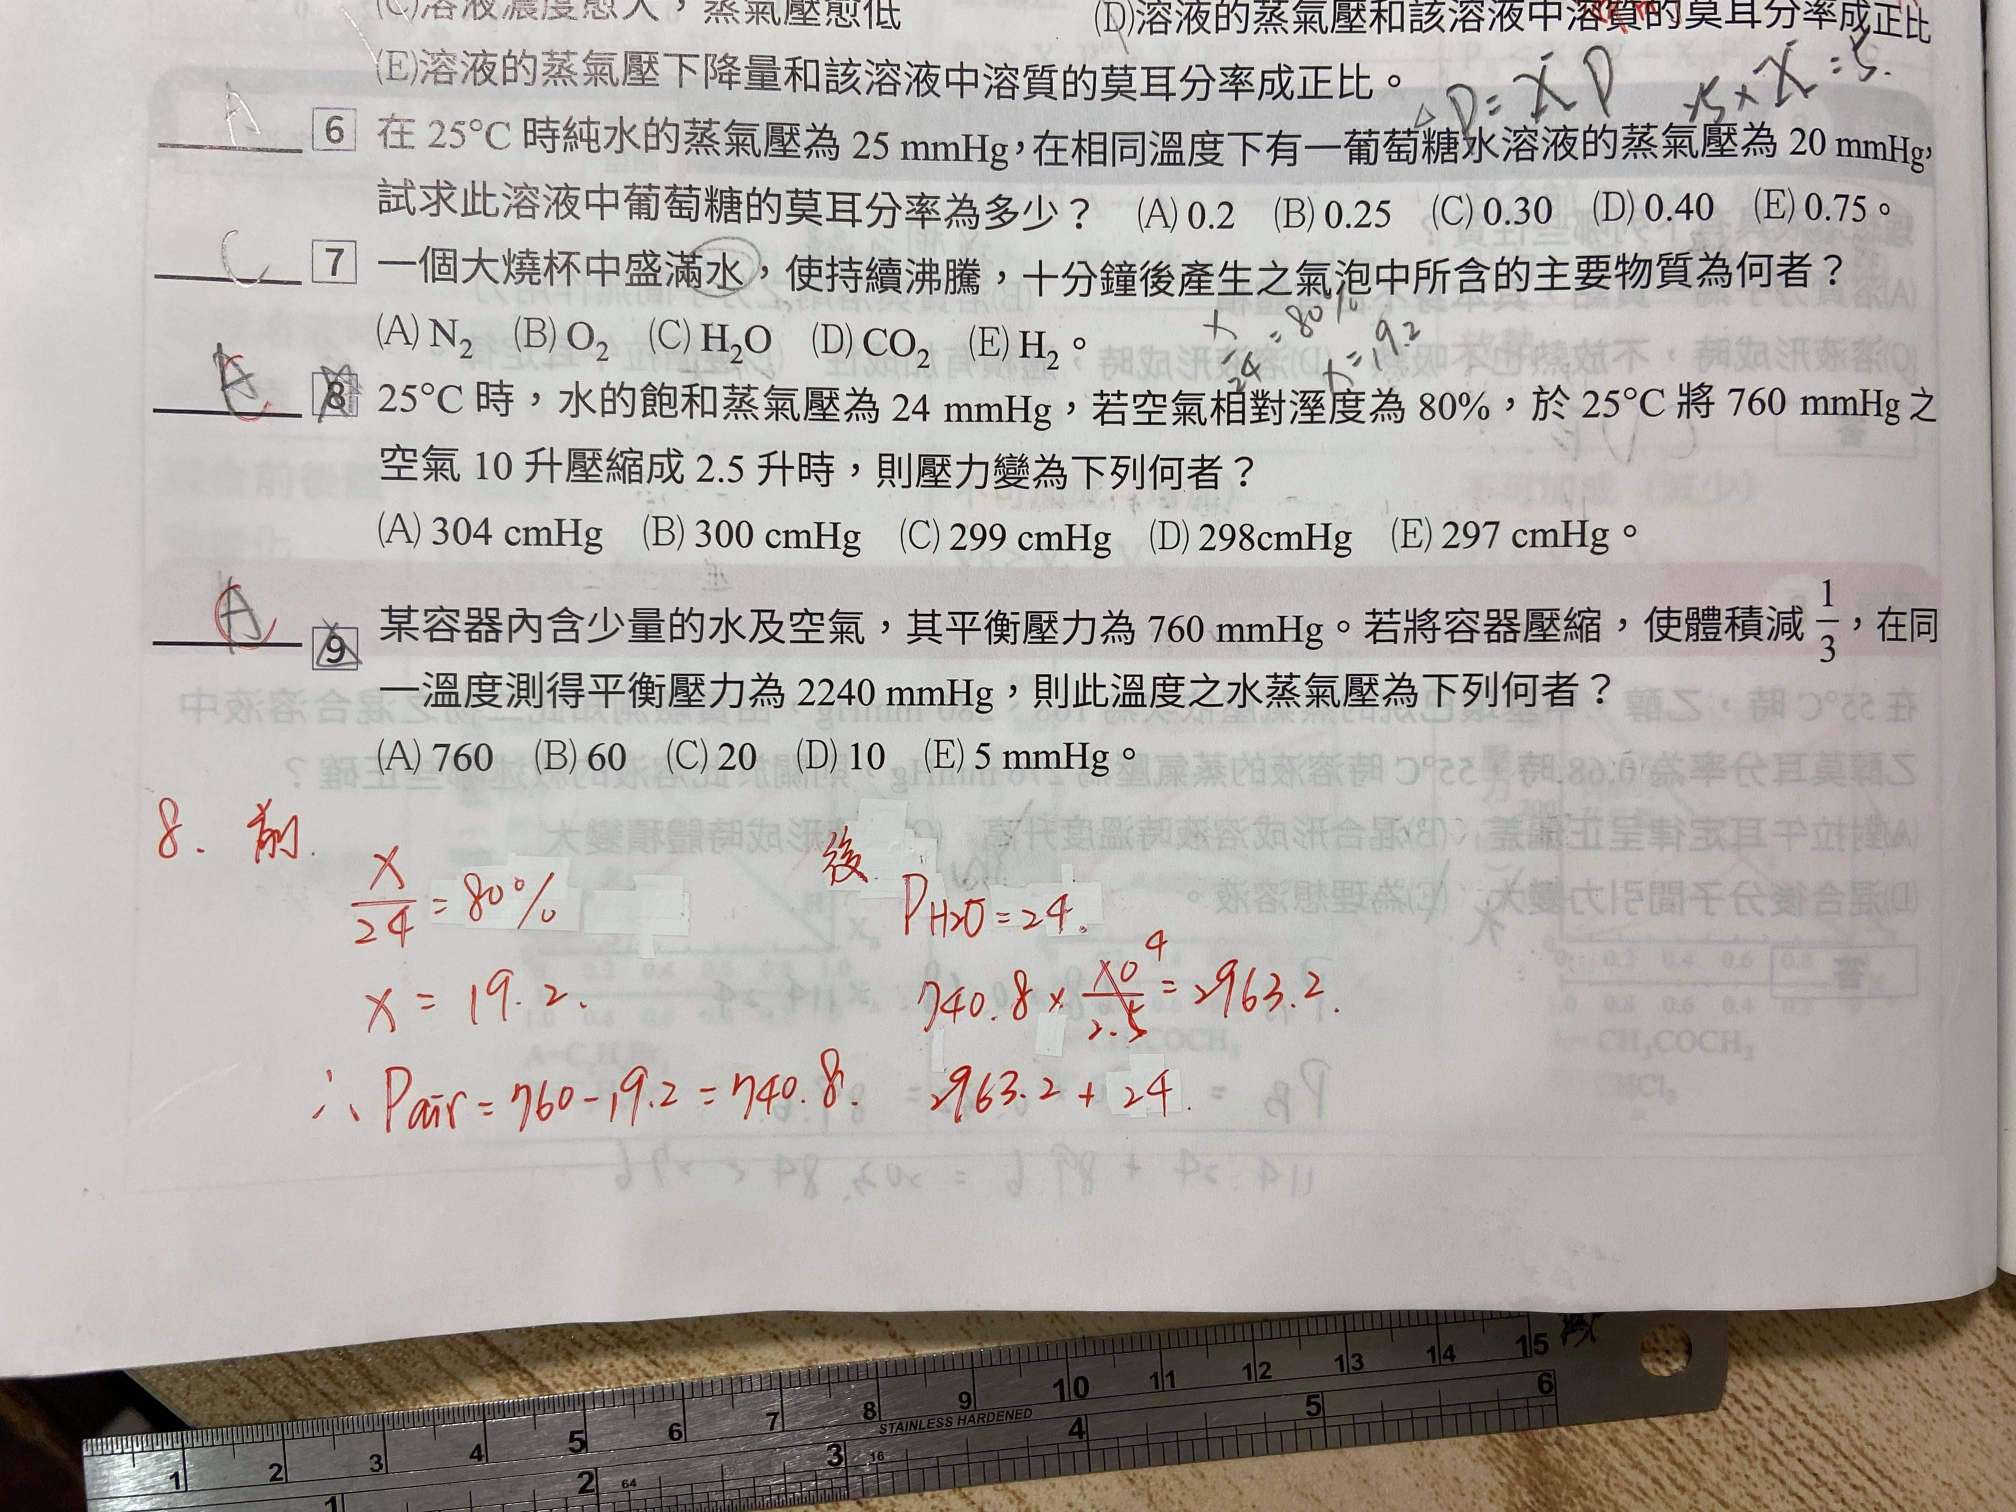 (C)溶液濃度愈大，蒸氣壓愈低 (D)溶液的蒸氣壓和該溶液中溶質的莫耳分率成正比
(E)溶液的蒸氣壓下降量和該溶液中溶質的莫耳分率成正比。
△P=XP
A 6 在 25°C 時純水的蒸氣壓為 25 mmHg，在相同溫度下有一葡萄糖水溶液的蒸氣壓為 20 mmHg，
試求此溶液中葡萄糖的莫耳分率為多少？ (A) 0.2 (B) 0.25 (C) 0.30 (D) 0.40 (E) 0.75。
C 7 一個大燒杯中盛滿水，使持續沸騰，十分鐘後產生之氣泡中所含的主要物質為何者？
(A) N₂ (B) O₂ (C) H₂O (D) CO₂ (E) H₂。
x/24 = 80%
x=19.2
8 25°C 時，水的飽和蒸氣壓為 24 mmHg，若空氣相對溼度為 80%，於 25°C 將 760 mmHg 之
空氣 10 升壓縮成 2.5 升時，則壓力變為下列何者？
(A) 304 cmHg (B) 300 cmHg (C) 299 cmHg (D) 298cmHg (E) 297 cmHg。
A 9 某容器內含少量的水及空氣，其平衡壓力為 760 mmHg。若將容器壓縮，使體積減 1/3，在同
一溫度測得平衡壓力為 2240 mmHg，則此溫度之水蒸氣壓為下列何者？
(A) 760 (B) 60 (C) 20 (D) 10 (E) 5 mmHg。
8. 前.
x/24 = 80%
x = 19.2.
∴ Pair = 760-19.2 = 740.8.
後
PH2O = 24.
740.8 x 10/2.5 = 2963.2.
4
2963.2 + 24.
1 2 3 4 5 6 7 8 9 10 11 12 13 14 15
STAINLESS HARDENED
1 2 3 4 5 6
64 16